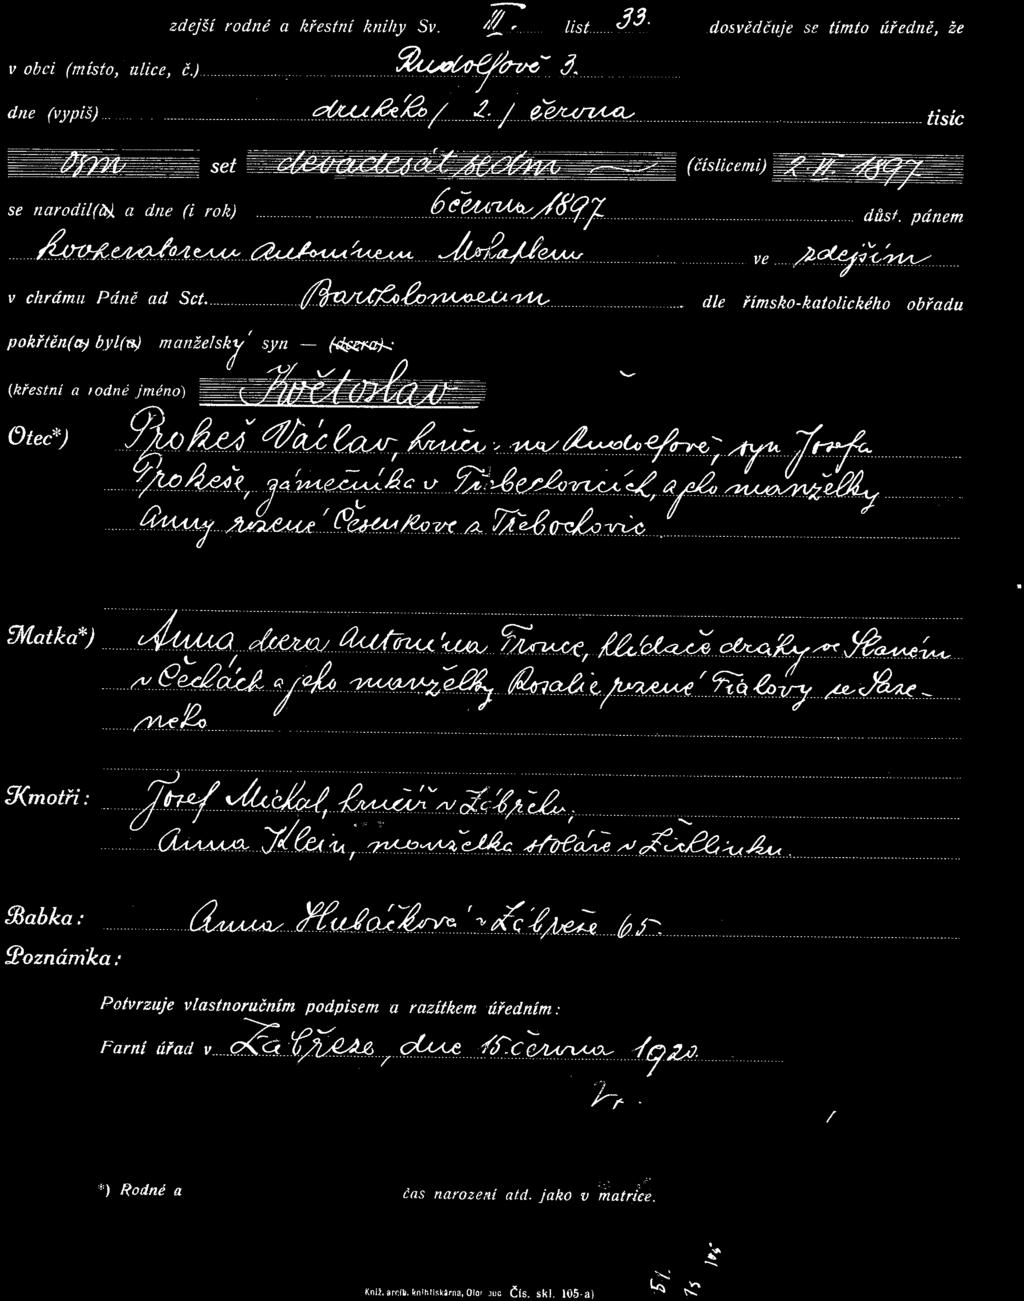 zdejší rodné a křestní knihy Sv. III. list 33. dosvědčuje se tímto úředně, že
v obci (místo, ulice, č.) Rudolfově 3.
dne (vypiš) druhého / 2. / června tisíc
osm set devadesát sedm (číslicemi) 2. VI. 1897
se narodil(a) a dne (i rok) 6 června 1897 důst. pánem
kooperatorem Antonínem Mohaplem ve zdejším
v chrámu Páně ad Sct. Bartholomaeum dle římsko-katolického obřadu
pokřtěn(a) byl(a) manželský syn — (dcera):
(křestní a rodné jméno) Květoslav
Otec*) Prokeš Václav, na Rudolfově, syn Josefa
Prokeše, zámečníka v Třebechovicích, a jeho manželky
Anny rozené Česenkove z Třebochovic
Matka*) Anna dcera Antonína hlídače dráhy ve
v Čechách a jeho manželky Rosalie rozené Fialovy ze
Kmotři: Josef Michal, hrnčíř v Zábřehu,
Anna Klein, manželka stoláře v Žichlínku.
Babka: Anna Hubáčková v Zábřeze 65.
Poznámka:
Potvrzuje vlastnoručním podpisem a razítkem úředním:
Farní úřad v Zábřeze, dne 15. června 1920.
*) Rodné a čas narození atd. jako v matrice.
Kniž. arcib. knihtiskárna, Čís. skl. 105-a)